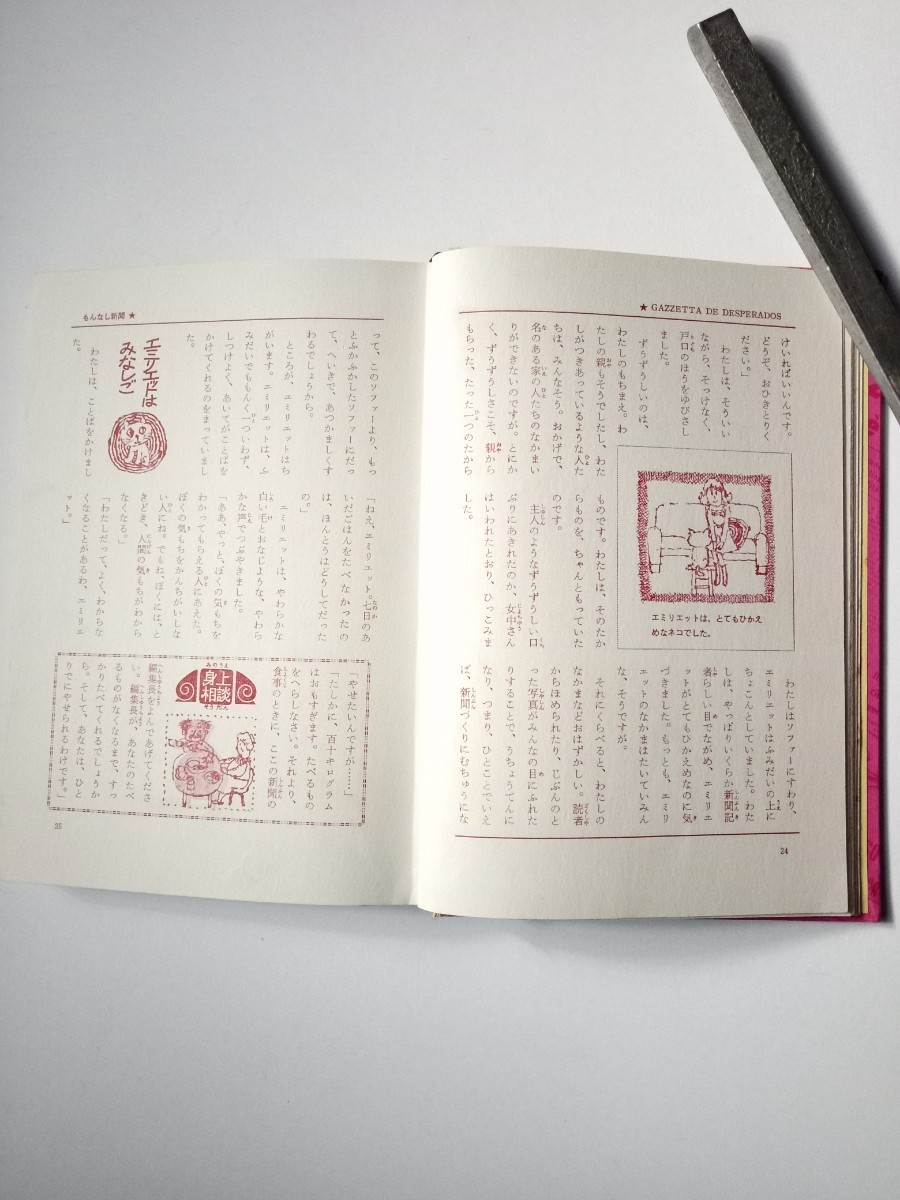 ★ GAZZETTA DE DESPERADOS
けいればいいんです。
どうぞ、おひきとりく
ださい。」
わたしは、そういい
ながら、そっけなく、
戸口のほうをゆびさし
ました。
ずうずうしいのは、
わたしのもちまえ。わ
たしの親もそうでしたし、わた
しがつきあっているような人た
ちは、みんなそう。おかげで、
名のある家の人たちのなかまい
りができないのですが。とにか
く、ずうずうしさこそ、親から
もらった、たった一つのたから
ものです。わたしは、そのたか
らものを、ちゃんともっていた
のです。
主人のようなずうずうしい口
ぶりにあきれたのか、女中さん
はいわれたとおり、ひっこみま
した。
エミリエットは、とてもひかえ
めなネコでした。
わたしはソファーにすわり、
エミリエットはふみだいの上に
ちょこんとしていました。わた
しは、やっぱりいくらか新聞記
者らしい目でながめ、エミリエ
ットがとてもひかえめなのに気
づきました。もっとも、エミリ
エットのなかまはたいていみん
な、そうですが。
それにくらべると、わたしの
なかまなどおはずかしい。読者
からほめられたり、じぶんのと
った写真がみんなの目にふれた
りすることで、うちょうてんに
なり、つまり、ひとことでいえ
ば、新聞づくりにむちゅうにな
24
もんなし新聞 ★
って、このソファーより、もっ
とふかふかしたソファーにだっ
て、へいきで、あつかましくす
わるでしょうから。
ところが、エミリエットはち
がいます。エミリエットは、ふ
みだいでももんく一ついわず、
しつけよく、あいてがことばを
かけてくれるのをまっていまし
た。
エミリエットは
みなしご
わたしは、ことばをかけまし
た。
「ねえ、エミリエット。七日のあ
いだごはんをたべなかったの
は、ほんとうはどうしてだった
の」
エミリエットは、やわらかな
白い毛とおなじような、やわら
かな声でつぶやきました。
「ああ、やっと、ぼくの気もちを
わかってもらえる人にあえた。
ぼくの気もちをかんちがいしな
い人にね。でもね、ぼくには、と
きどき、人間の気もちがわから
なくなる。」
「わたしだって、よく、わからな
くなることがあるわ、エミリエ
ット。」
身上相談
みのうえ
そうだん
「やせたいんですが……」
「たしかに、百十キログラム
はおもすぎます。たべるもの
をへらしなさい。それより、
食事のときに、ここの新聞の
編集長をよんであげてくださ
い。編集長が、あなたのたべ
るものがなくなるまで、すっ
かりたべてくれるでしょうか
ら。そして、あなたは、ひと
りでにやせられるわけです。」
25